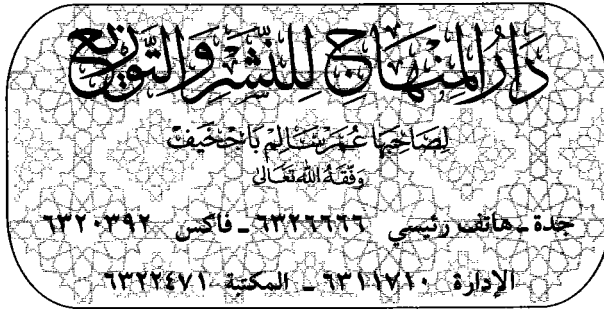 دَارُ المِنْهَاجِ لِلنَّشْرِ وَالتَّوْزِيعِ
لِصَاحِبِهَا عُمَر سَالِم بَاجخَيف
وَفَّقَهُ اللهُ تَعَالى
جدة ـ هاتف رئيسي ٦٣٢٦٦٦٦ ـ فاكس ٦٣٢٠٣٩٢
الإدارة ٦٣١١٧١٠ ـ المكتبة ٦٣٢٢٤٧١